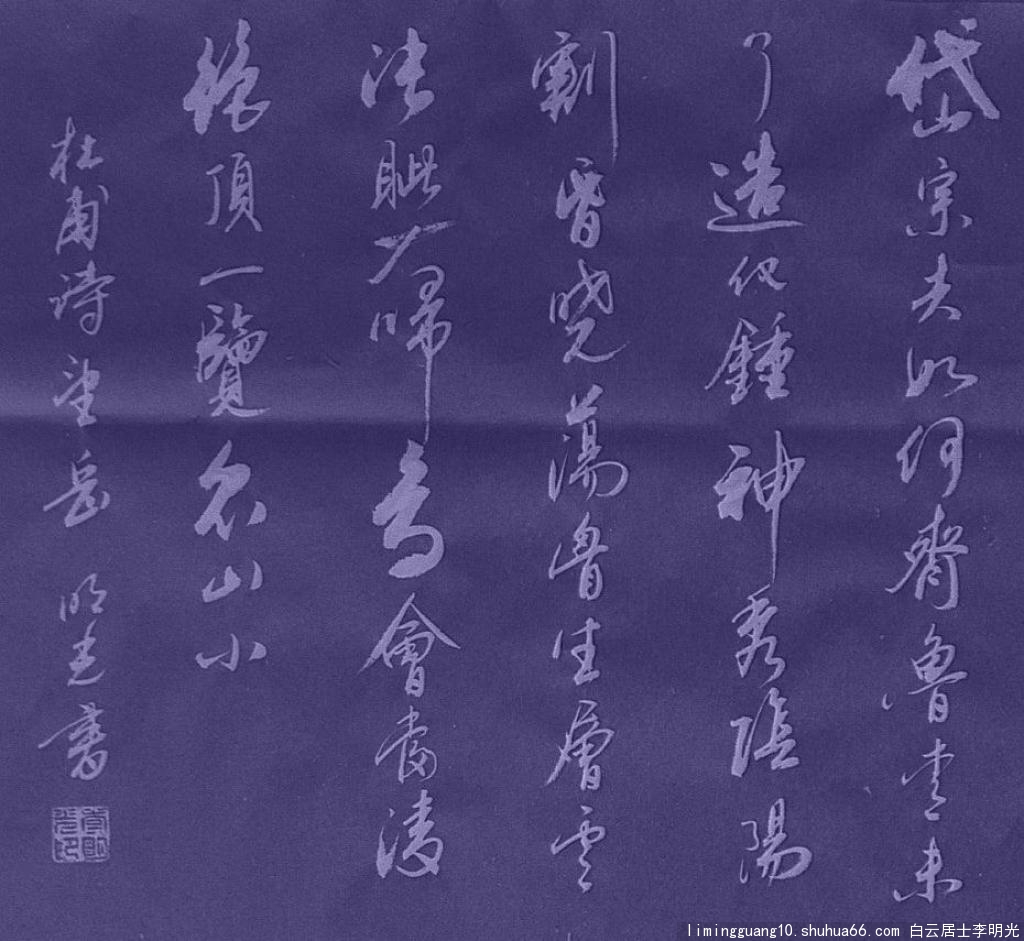 岱宗夫如何齊魯青未
了造化鍾神秀陰陽
割昏曉蕩胷生層雲
決眦入歸鳥會當凌
絶頂一覽衆山小
杜甫詩望岳 明光書
limingguang10.shuhua66.com 白云居士李明光